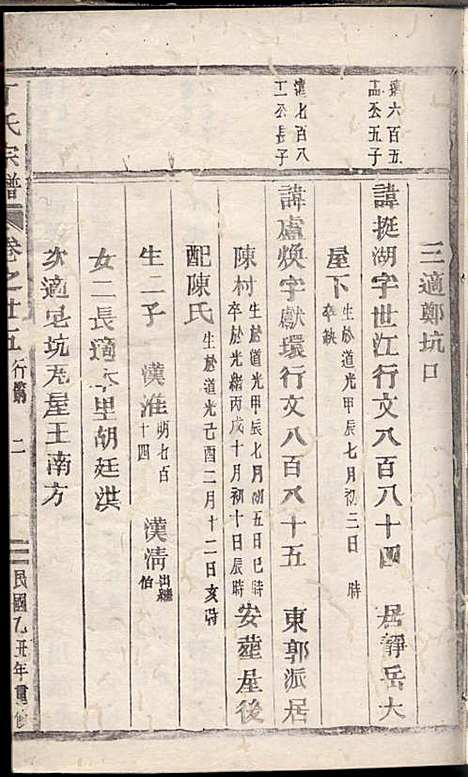 三適鄭坑口
德六百五
高公五子
諱挺湖字世江行文八百八十四 居靜岳大
屋下 生於道光甲辰七月初三日 時
卒缺
德七百八
工公長子
諱盧煥字獻環行文八百八十五 東郭派居
陳村 生於道光甲辰七月初五日巳時
卒於光緒丙戌十月初十日辰時 安葬屋後
配陳氏 生於道光己酉二月十二日亥時
生二子 漢淮 明七百
十四 漢清 出繼
伯
女二長適本里胡廷洪
次適皂坑尢屋王南方
丁氏宗譜 卷之廿五 行 二 民國乙丑年重修